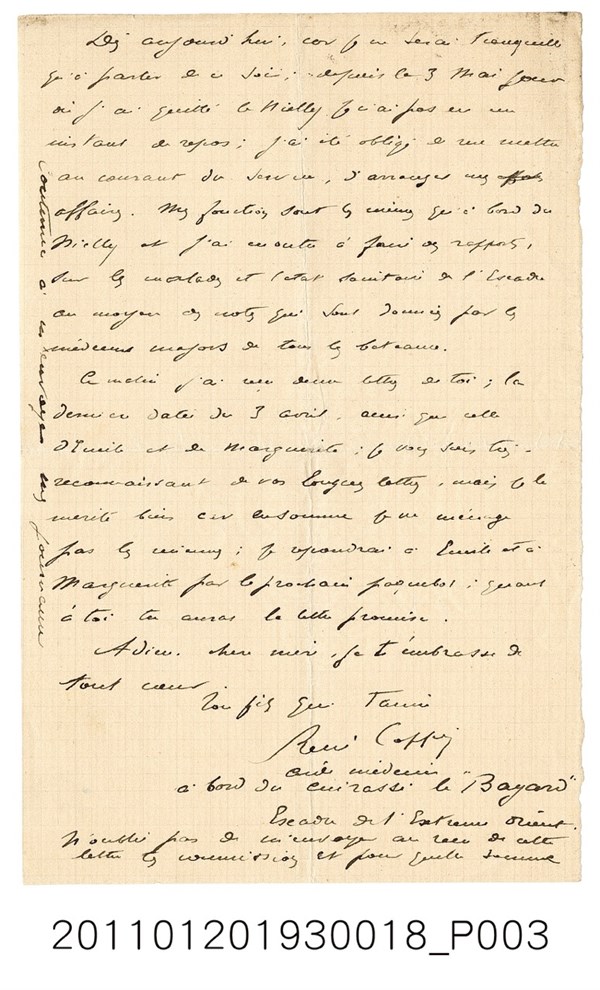 Dès aujourd'hui, car je ne serai tranquille
qu'à partir de ce soir; depuis le 3 Mai jour
où j'ai quitté le Nielly je n'ai pas eu un
instant de repos; j'ai été obligé de me mettre
au courant du service, d'arranger mes
affaires. Mes fonctions sont les mêmes qu'à bord du
Nielly et j'ai en outre à faire des rapports,
sur les malades et l'état sanitaire de l'Escadre
au moyen des notes qui sont données par les
médecins majors de tous les bateaux.
Ce matin j'ai reçu deux lettres de toi; la
dernière datée du 3 avril, ainsi que celle
d'Emile et de Marguerite; je vous suis très
reconnaissant de vos longues lettres, mais je le
mérite bien car en somme je ne ménage
pas les miennes; je répondrai à Emile et à
Marguerite par le prochain paquebot; quant
à toi tu auras la lettre promise.
Adieu chère mère, je t'embrasse de
tout cœur.
Ton fils qui t'aime
René Coppin
aide médecin
à bord du cuirassé le "Bayard"
Escadre de l'Extrême Orient.
N'oublie pas de m'envoyer au reçu de cette
lettre les commissions et pour quelle somme
Continue à m'envoyer mes journaux
201101201930018_P003